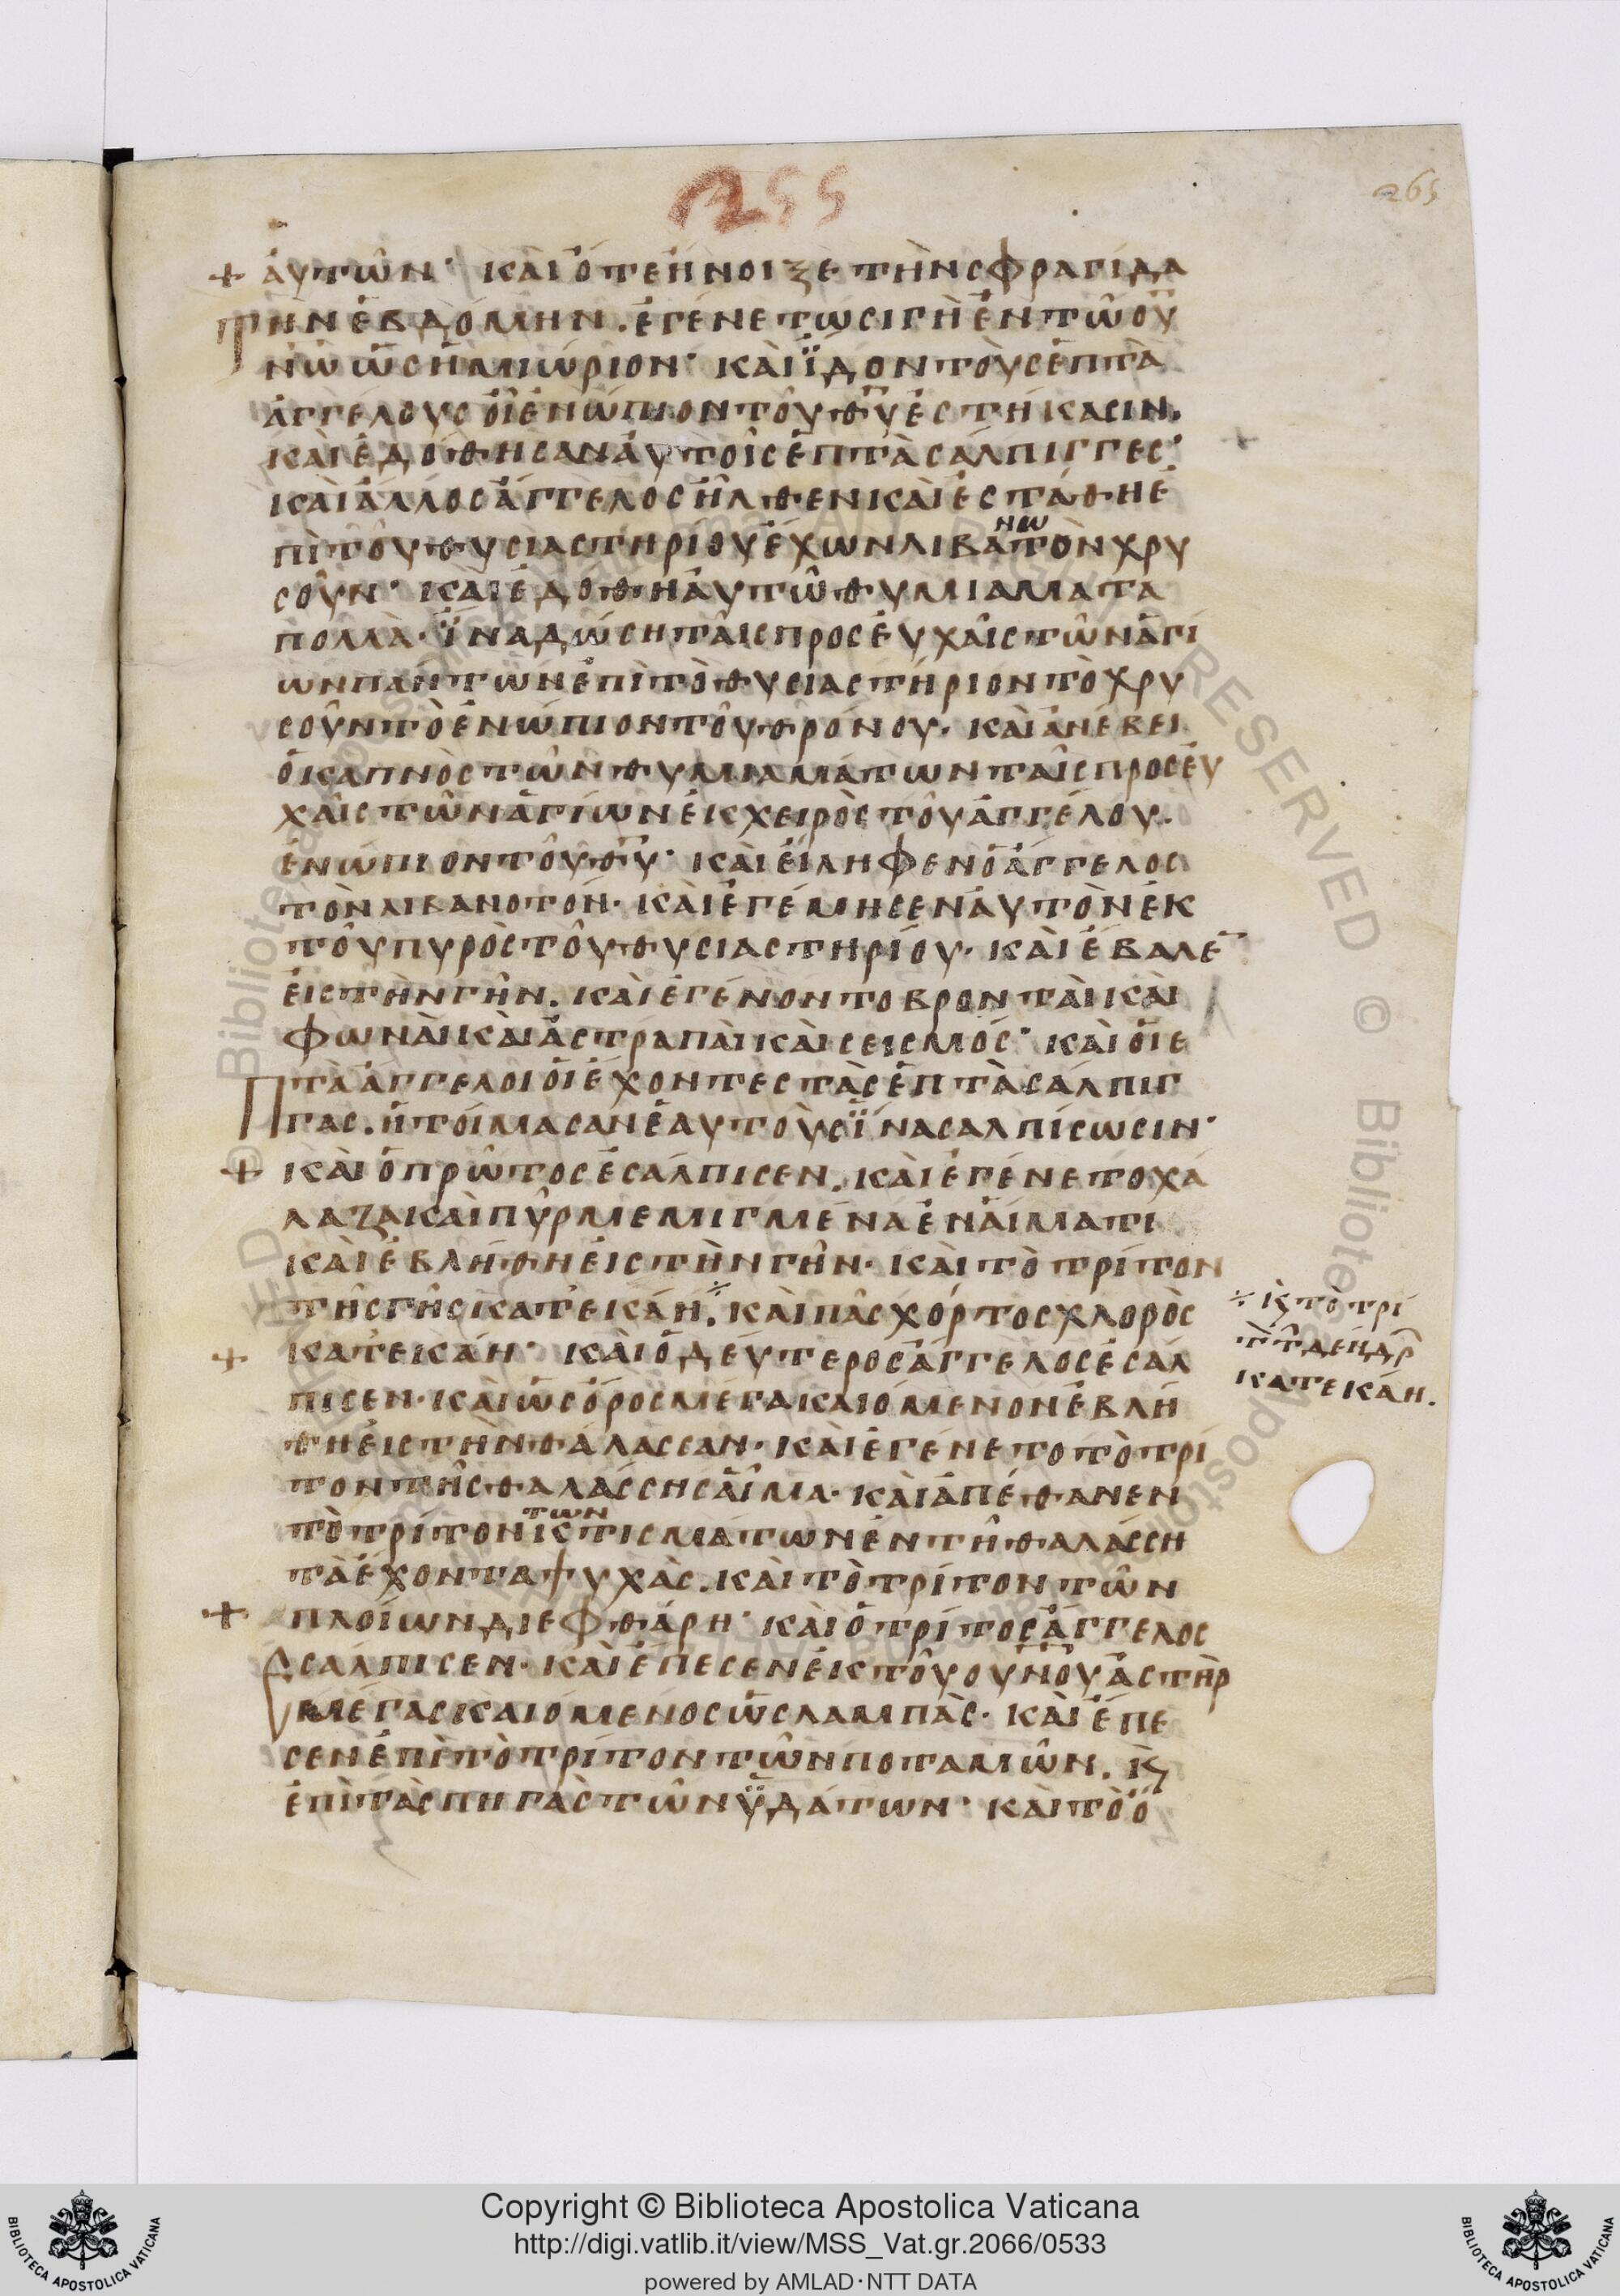 255
265
ἀυτῶν· καὶ ὅτε ἤνοιξε τὴν σφραγίδα
τὴν ἑβδόμην. ἐγένετω σιγὴ ἐν τῶ οὐ
νῶ ὡς ἡμιώριον· καὶ ἴδον τοὺς ἑπτὰ
ἀγγέλους οἳ ἐνώπιον τοῦ θυ ἑστήκασιν.
καὶ ἐδόθησαν ἀυτοῖς ἑπτὰ σάλπιγγες·
καὶ ἄλλος ἄγγελος ἦλθεν καὶ ἐστάθη ἐ
νω
πὶ τοῦ θυσιαστηρίου ἔχων λιβατὸν χρυ
σοῦν· καὶ ἐδόθη ἀυτῶ θυμιάματα
πολλὰ· ἵνα δώσῃ ταῖς προσευχαῖς τῶν ἁγί
ων πάντων ἐπὶ τὸ θυσιαστήριον τὸ χρυ
σοῦν τὸ ἐνώπιον τοῦ θρόνου. καὶ ἀνέβει
ὁ καπνὸς τῶν θυμιαμάτων ταῖς προσευ
χαῖς τῶν ἁγίων ἐκ χειρὸς τοῦ ἀγγέλου.
ἐνώπιον τοῦ θυ· καὶ εἴληφεν ὁ ἄγγελος
τὸν λιβανοτόν· καὶ ἐγέμησεν ἀυτὸν ἐκ
τοῦ πυρὸς τοῦ θυσιαστηρίου· καὶ ἔβαλε̅
εἰς τὴν γῆν. καὶ ἐγένοντο βρονταὶ καὶ
φωναὶ καὶ ἀστραπαὶ καὶ σεισμός· καὶ οἱ ε
πτὰ ἄγγελοι οἱ ἔχοντες τὰς ἑπτὰ σάλπιγ
γας. ἡτοίμασαν ἑαυτοὺς ἵνα σαλπίσωσιν·
καὶ ὁ πρῶτος ἐσάλπισεν. καὶ ἐγένετο χά
λαζα καὶ πῦρ μεμιγμένα ἐν αἵματι
καὶ ἐβλήθη εἰς τὴν γῆν· καὶ τὸ τρίτον
τῆς γῆς κατεκάη.÷ καὶ πᾶς χόρτος χλορὸς
÷ κ̀ τὸ τρί
τ̀ τ̑ δένδρ
κατεκάη.
κατεκάη· καὶ ὁ δεύτερος ἄγγελος ἐσάλ
πισεν· καὶ ὡς ὄρος μέγα καιόμενον ἐβλή
θη εἰς τὴν θάλασσαν· καὶ ἐγένετο τὸ τρί
τον τῆς θαλάσσης αἷμα· καὶ ἀπέθανεν
των
τὸ τρίτον κτισμάτων ἐν τῇ θαλάσσῃ
τὰ ἔχοντα ψυχάς. καὶ τὸ τρίτον τῶν
πλοίων διεφθάρη· καὶ ὁ τρίτος ἄγγελος
ἐσάλπισεν· καὶ ἔπεσεν ἐκ τοῦ οὐνοῦ ἀστὴρ
μέγας καιόμενος ὡς λαμπὰς· καὶ ἔπε
σεν ἐπὶ τὸ τρίτον τῶν ποταμῶν. κ̀
ἐπὶ τὰς πηγὰς τῶν ὑδάτων· καὶ τὸ ὄ
Copyright © Biblioteca Apostolica Vaticana
http://digi.vatlib.it/view/MSS_Vat.gr.2066/0533
powered by AMLAD·NTT DATA